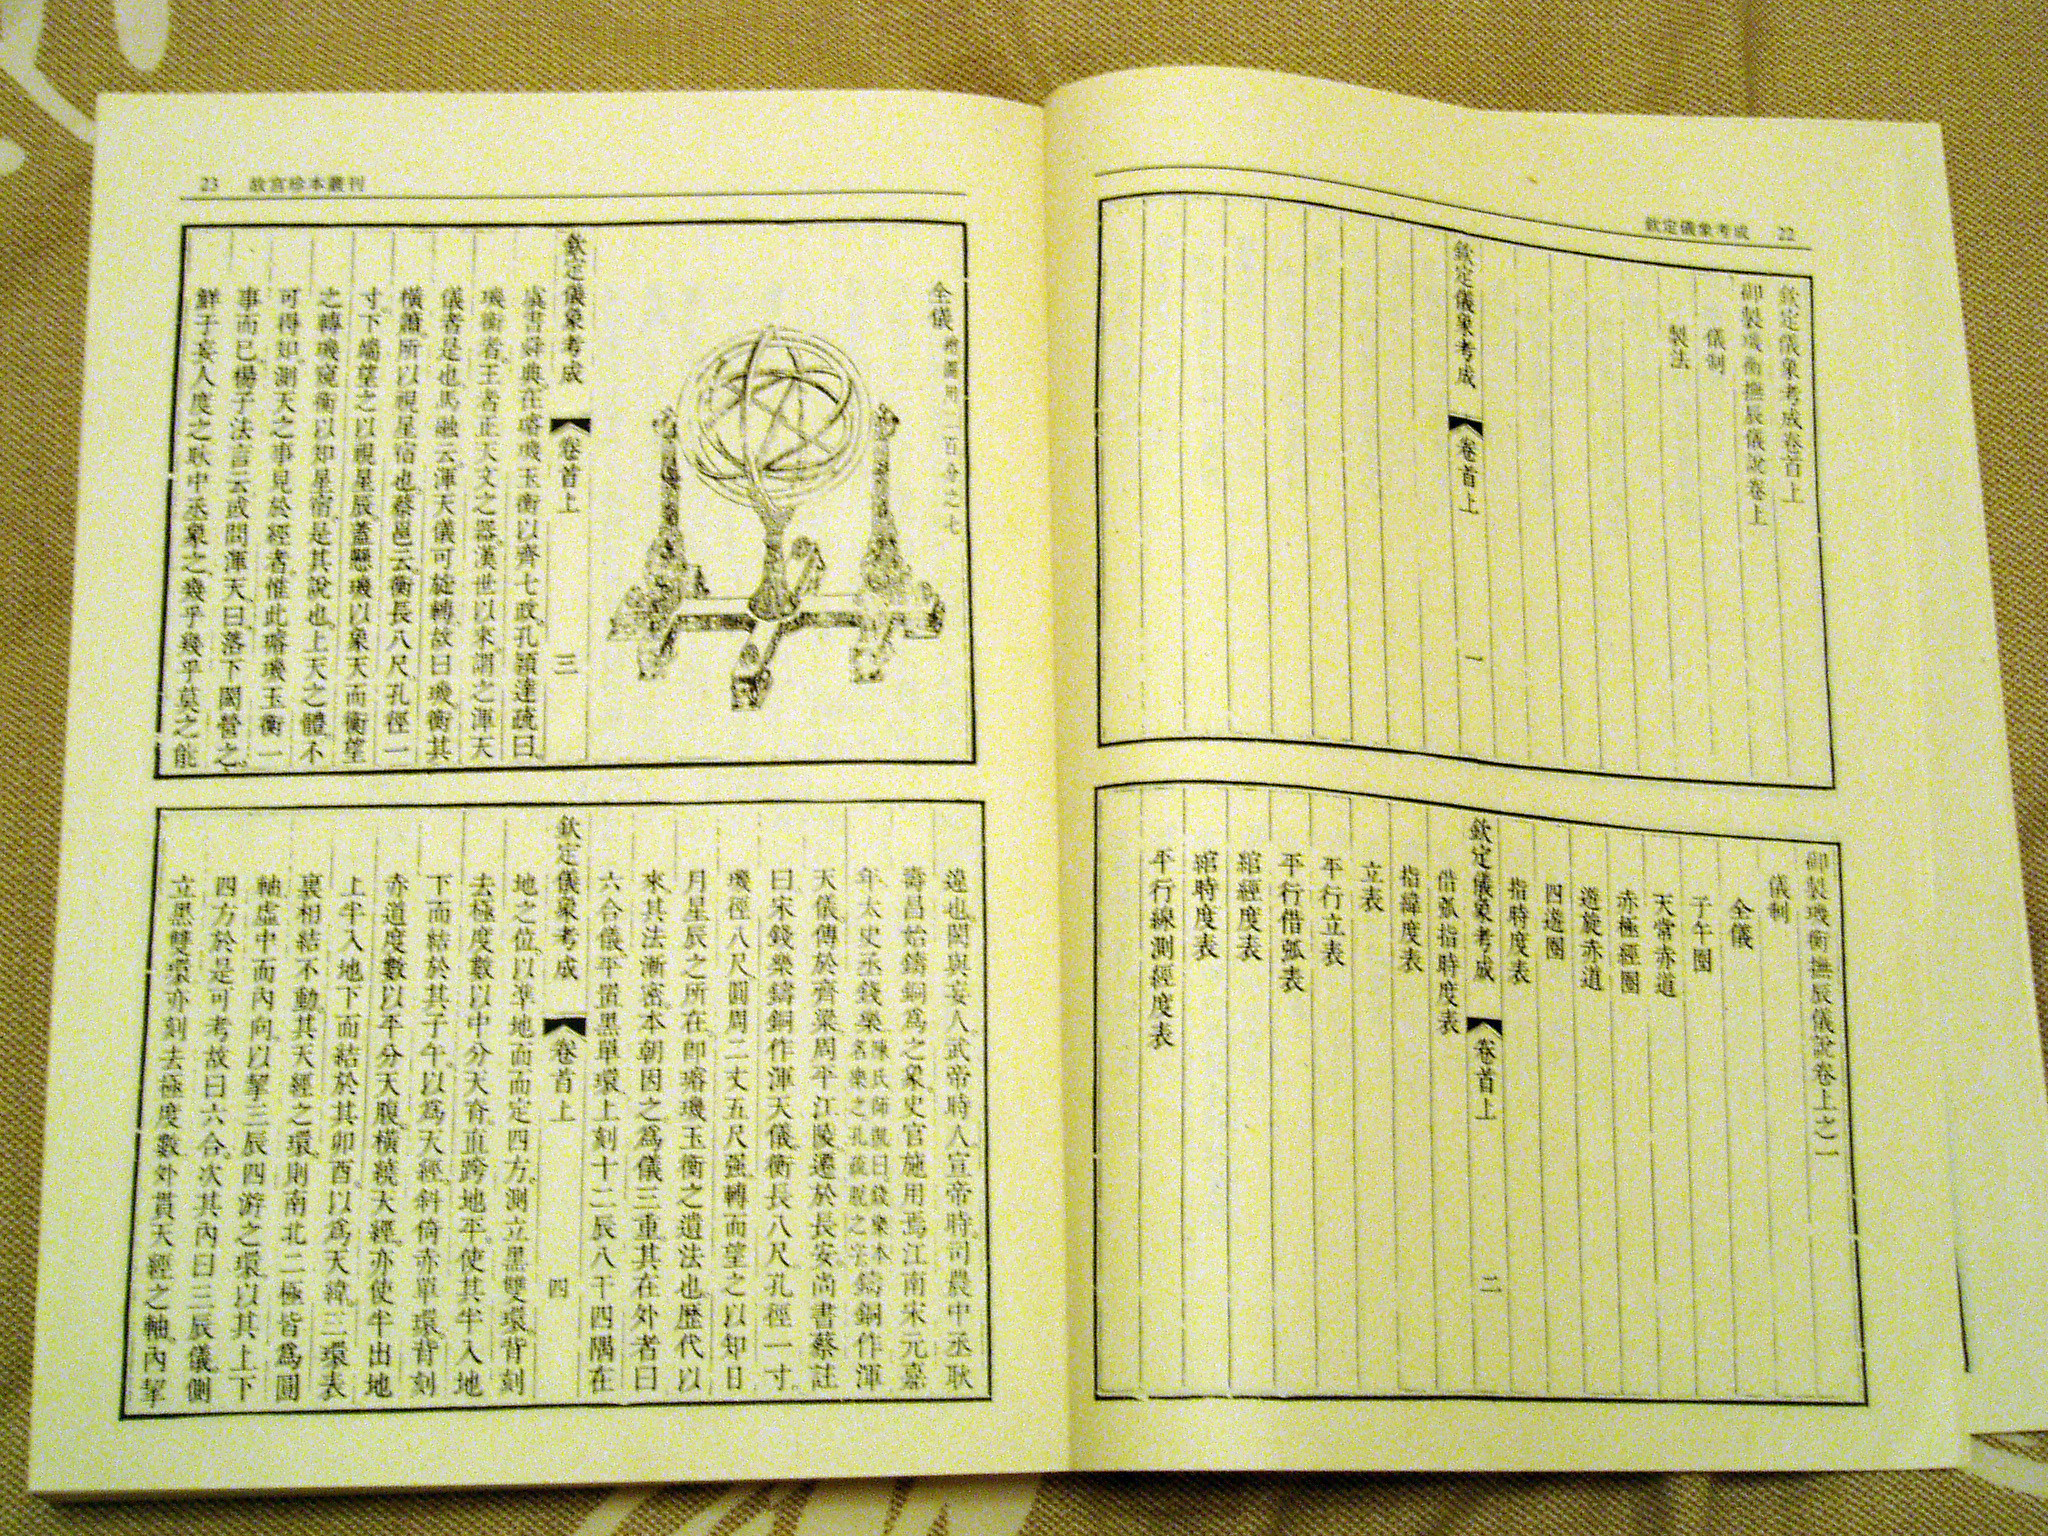 欽定儀象考成　22
欽定儀象考成卷首上
御製璣衡撫辰儀說卷上
儀制
製法
欽定儀象考成　卷首上　一
御製璣衡撫辰儀說卷上之一
儀制
全儀
子午圈
天常赤道
赤極經圈
遊旋赤道
四遊圈
指時度表
欽定儀象考成　卷首上　二
借弧指時度表
指緯度表
立表
平行立表
平行借弧表
綰經度表
綰時度表
平行線測經度表
23　故宮珍本叢刊
全儀 繪圖用一百分之七
欽定儀象考成　卷首上　三
虞書舜典在璿璣玉衡以齊七政孔穎達疏曰
璣衡者王者正天文之器漢世以來謂之渾天
儀者是也馬融云渾天儀可旋轉故曰璣衡其
橫簫所以視星宿也蔡邕云衡長八尺孔徑一
寸下端望之以視星辰蓋懸璣以象天而衡望
之轉璣窺衡以知星宿是其說也上天之體不
可得知測天之事見於經者惟此璿璣玉衡一
事而已楊子法言云或問渾天曰落下閎營之
鮮于妄人度之耿中丞象之幾乎幾乎莫之能
違也閎與妄人武帝時人宣帝時司農中丞耿
壽昌始鑄銅爲之象史官施用焉江南宋元嘉
年太史丞錢樂鑄銅作渾
天儀傳於齊梁周平江陵遷於長安尚書蔡註
曰宋錢樂鑄銅作渾天儀衡長八尺孔徑一寸
璣徑八尺圓周二丈五尺强轉而望之以知日
月星辰之所在卽璿璣玉衡之遺法也歷代以
來其法漸密本朝因之爲儀三重其在外者曰
六合儀平置黑單環上刻十二辰八干四隅在
欽定儀象考成　卷首上　四
地之位以準地面而定四方測立黑雙環背刻
去極度數以中分天脊直跨地平使其半入地
下而結於其子午以爲天經斜倚赤單環背刻
赤道度數以平分天腹橫繞天經亦使半出地
上半入地下而結於其卯酉以爲天緯三環表
裏相結不動其天經之環則南北二極皆爲圓
軸虛中而內向以挈三辰四游之環以其上下
四方於是可考故曰六合次其內曰三辰儀側
立黑雙環亦刻去極度數外貫天經之軸內挈